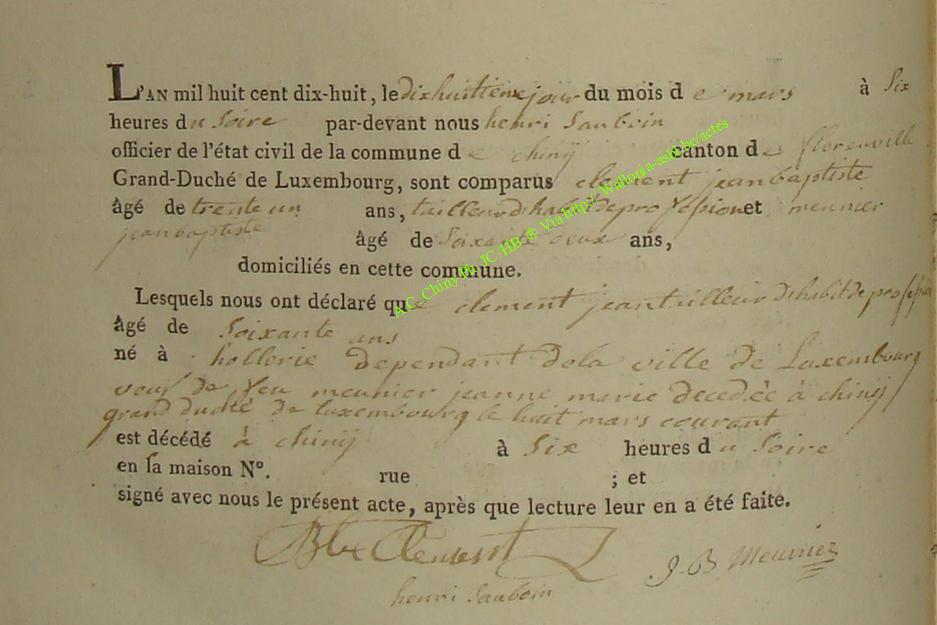 L'AN mil huit cent dix-huit, le dixhuitieme jour du mois d e mars à Six
heures du Soire par-devant nous henri Sauboin
officier de l'état civil de la commune d e chinÿ canton de florenville
Grand-Duché de Luxembourg, sont comparus clement jeanbaptiste
âgé de trente un ans, tailleur dhabit de profession et meunier
jeanbaptiste âgé de Soixante deux ans,
domiciliés en cette commune.
Lesquels nous ont déclaré que clement jean tailleur dhabit de profession
âgé de Soixante ans
né à hollerie dependant dela ville de Luxembourg
veuf de feu meunier jeanne marie decedéé à chinÿ
grand duché de luxembourg le huit mars courant
est décédé à chinÿ à Six heures du Soire
en sa maison N°. rue ; et
signé avec nous le présent acte, après que lecture leur en a été faite.
Bte Clement J. B. Meunier
henri Sauboin
A.C. Chiny Ph. JC/HB ® Via http://Wallonia-asbl.be/actes